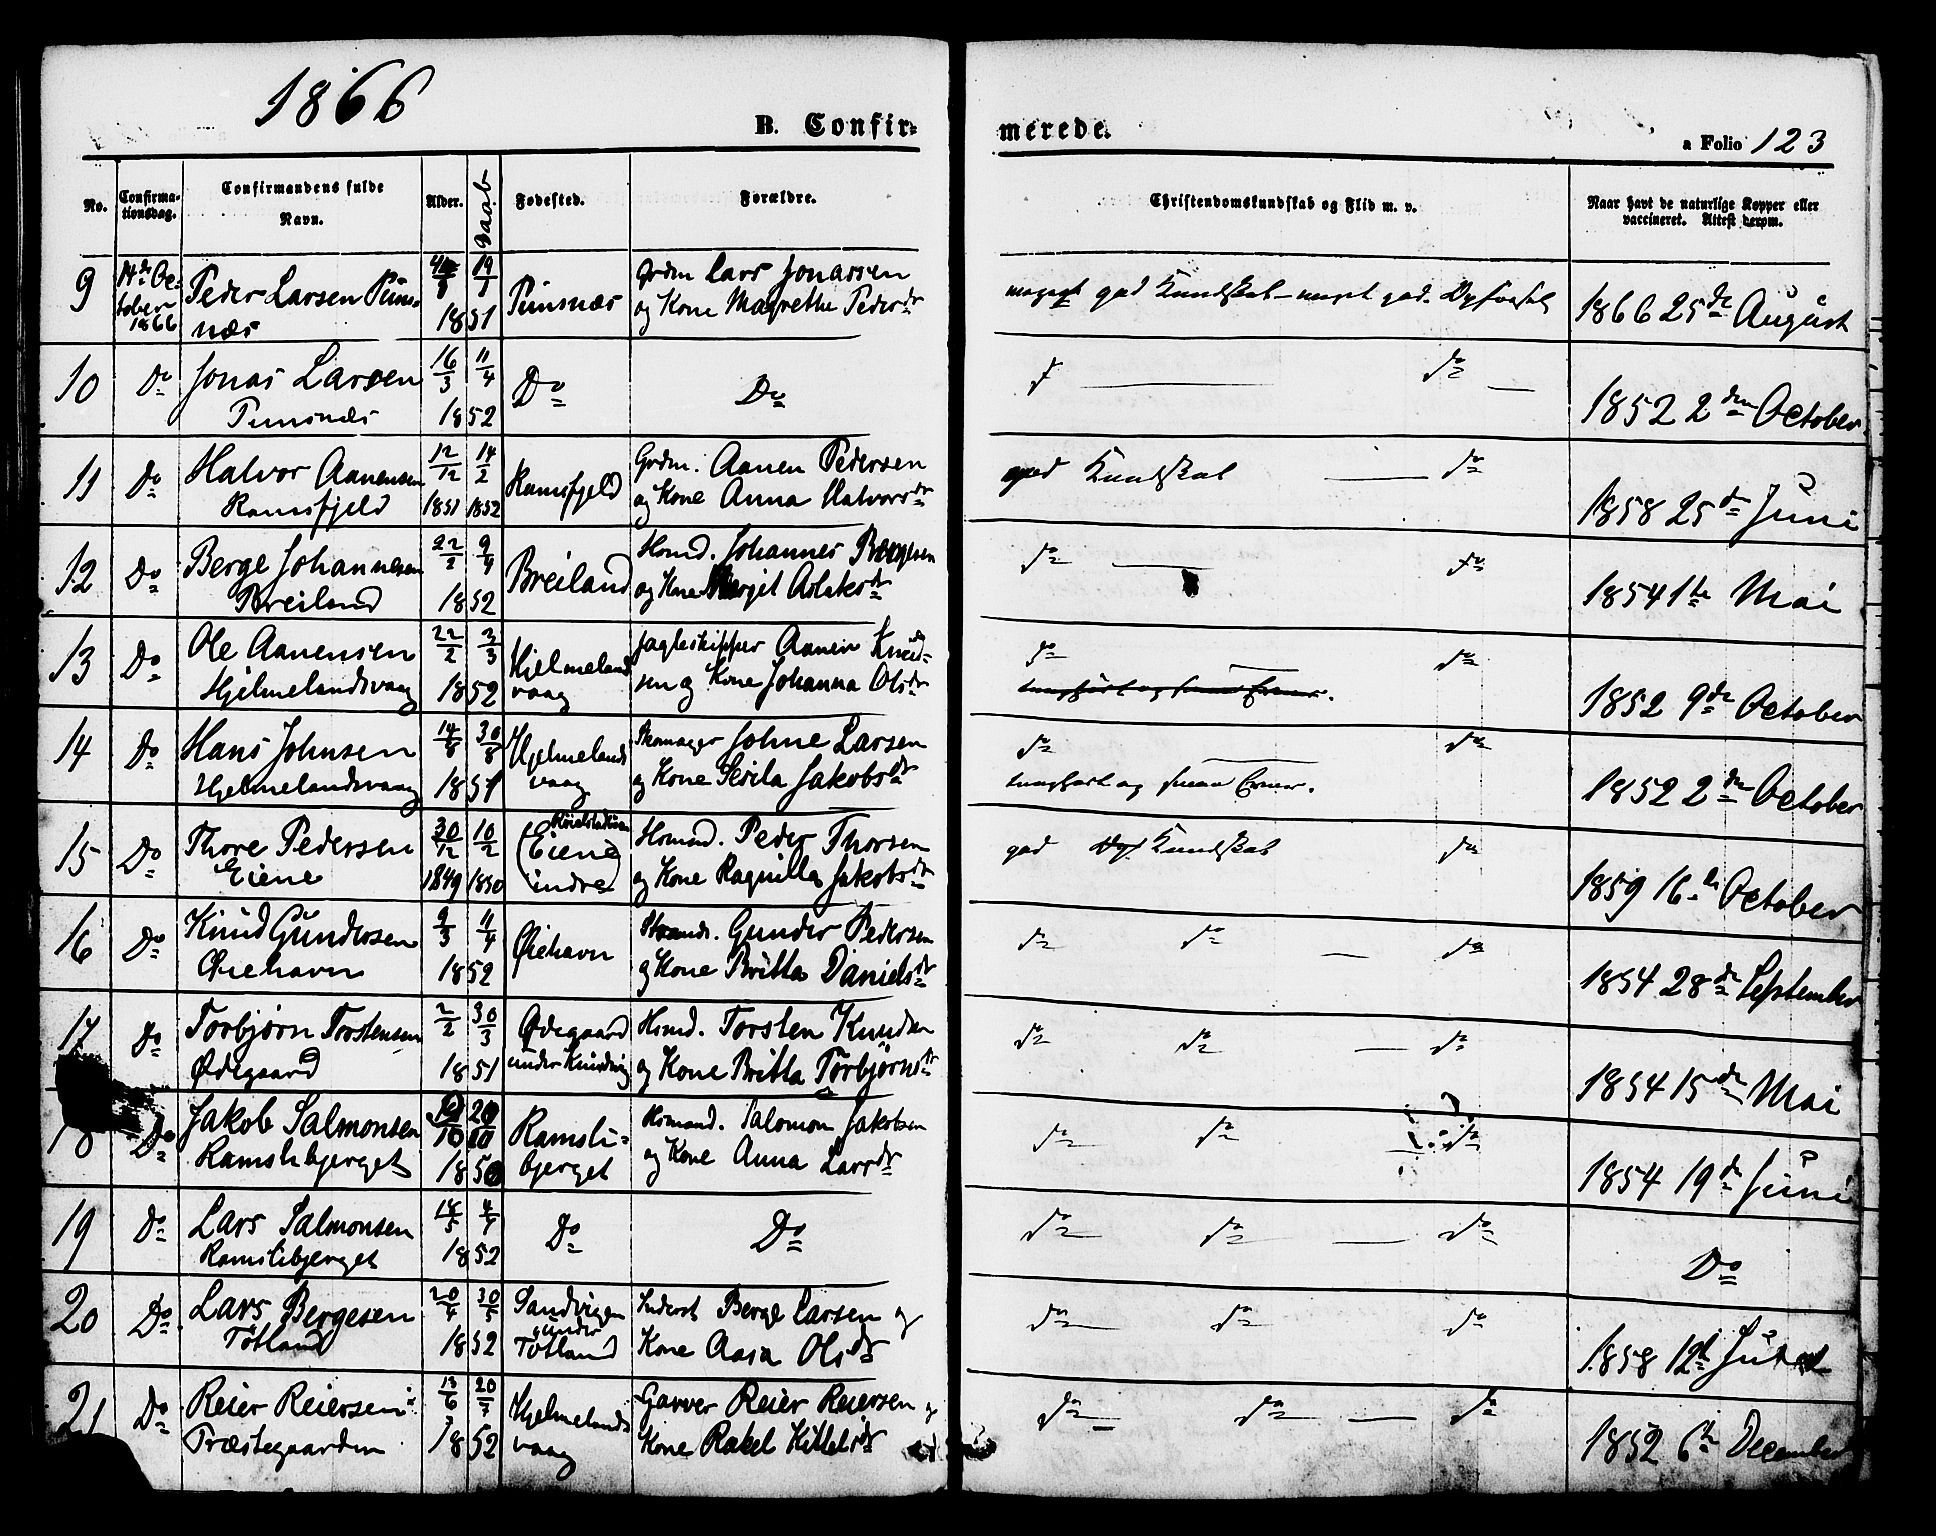 1866
B. Confir- merede.
a Folio 123
No.
Confirma-
tionsdag.
Confirmandens fulde
Navn.
Alder.
Daab
Fødested.
Forældre.
Christendomskundskab og Flid m. v.
Naar havt de naturlige Kopper eller
vaccineret. Attest derom.
9 14de Oc-
tober
1866
Peder Larsen
næs
19
18 51
Grdm Lars Jonassen
og Kone Magrethe Pedersdr
meget god Kundskab - meget god
1866 25de August
10 Do Jonas Larsen
16/3 11/4
18 52
Do Do
do
1852 2den October
11 Do Halvor Aanensen
Ramsfjeld
12/12 14/2
1851 1852
Ramsfjeld
Grdm. Aanen Pedersen
og Kone Anna Halvorsdr
god Kundskab do
1858 25de Juni
12 Do Berge Johannesen
Breiland
22/2 9/4
18 52
Breiland
Hsmd. Johannes Bergesen
og Kone Margit Aslaksdr
do do
1854 1ste Mai
13 Do Ole Aanensen
Hjelmelandsvaag
22/2 3/3
18 52
Hjelmeland
vaag
Jagteskipper Aanen Knud-
sen og Kone Johanna Olsdr
do do
1852 9de October
14 Do Hans Johnsen
Hjelmelandsvaag
14/8 30/8
18 51
Hjelmelands
vaag
Skomager Johne Larsen
og Kone Serila Jakobsdr
do do
tungført og smaa Evner.
1852 2den October
15 Do Thore Pedersen
Eiene
30/12 10/2
1849 1850
(Eiene)
indre
Hsmd. Peder Thorsen
og Kone Ragnilla Jakobsdr
god Kundskab do
1859 16de October
16 Do Knud Gundersen
Øiehavn
9/3 11/4
18 52
Øiehavn
Strands. Gunder Pedersen
og Kone Britta Danielsdr
do do do
1854 28de September
17 Do Torbjørn Torstensen
Ødegaard
2/2 30/3
18 51
Ødegaard
under Knudsvig
Hsmd. Torsten Knudsen
og Kone Britta Torbjørnsdr
do do do
1854 15de Mai
18 Do Jakob Salmonsen
Ramslibjerget
18 50
Ramsli-
bjerget
Hsmand. Salomon Jakobsen
og Kone Anna Larsdr
do do do
1854 19de Juni
19 Do Lars Salmonsen
Ramslibjerget
18 52
Do Do
do do do
Do
20 Do Lars Bergesen
Tøtland
20/4 30/5
18 52
Sandvigen
under
Tøtland
Inderst Berge Larsen og
Kone Aasa Olsdr
do do do
1858 12te
21 Do Reier Reiersen
Præstegaarden
13/6 20/7
18 52
Hjelmelands
vaag
Garver Reier Reiersen og
Kone Rakel Kittelsdr
do do do
1852 6te December